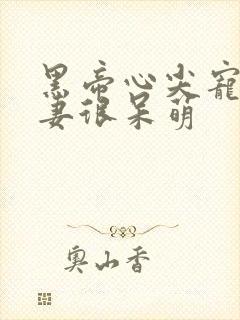 黑帝心尖宠
妻很呆萌
奥山香